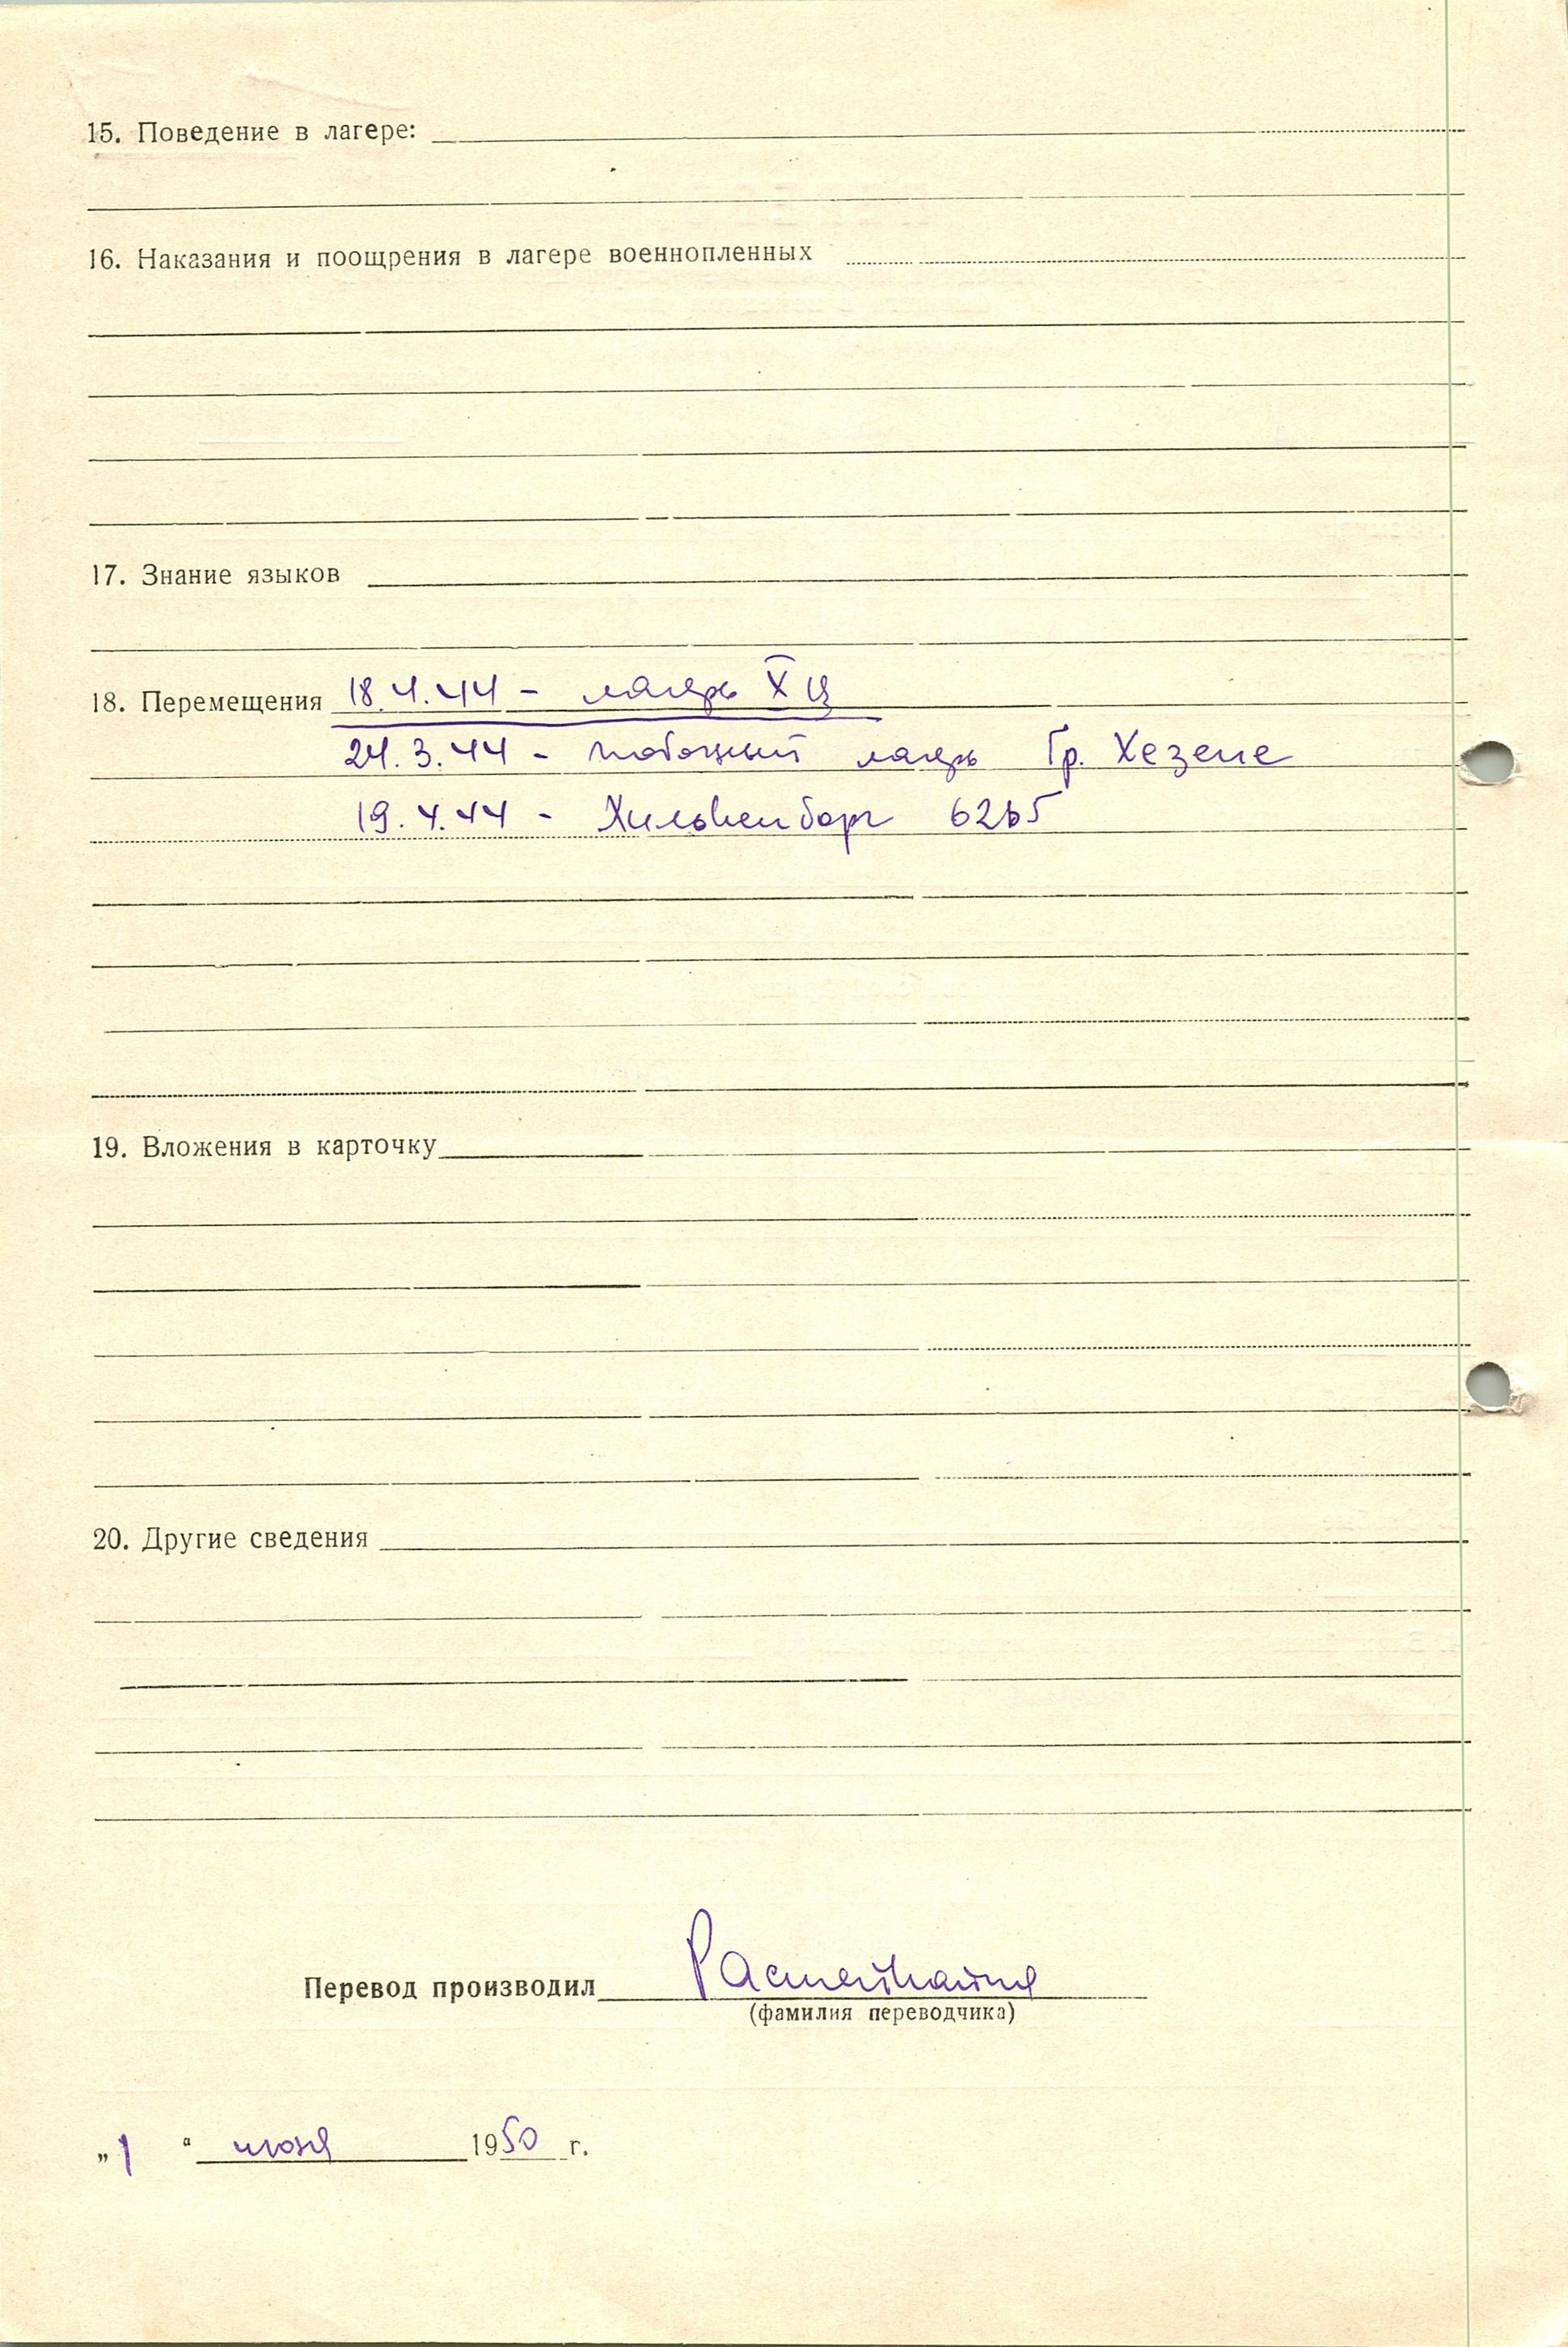 15. Поведение в лагере:
16. Наказания и поощрения в лагере военнопленных
17. Знание языков
18. Перемещения 18.4.44 - лагерь X Ц
24.3.44 - побочный лагерь Гр. Хезепе
19.4.44 -
19. Вложения в карточку
20. Другие сведения
Перевод производил
(фамилия переводчика)
„1“ июня 1950 г.